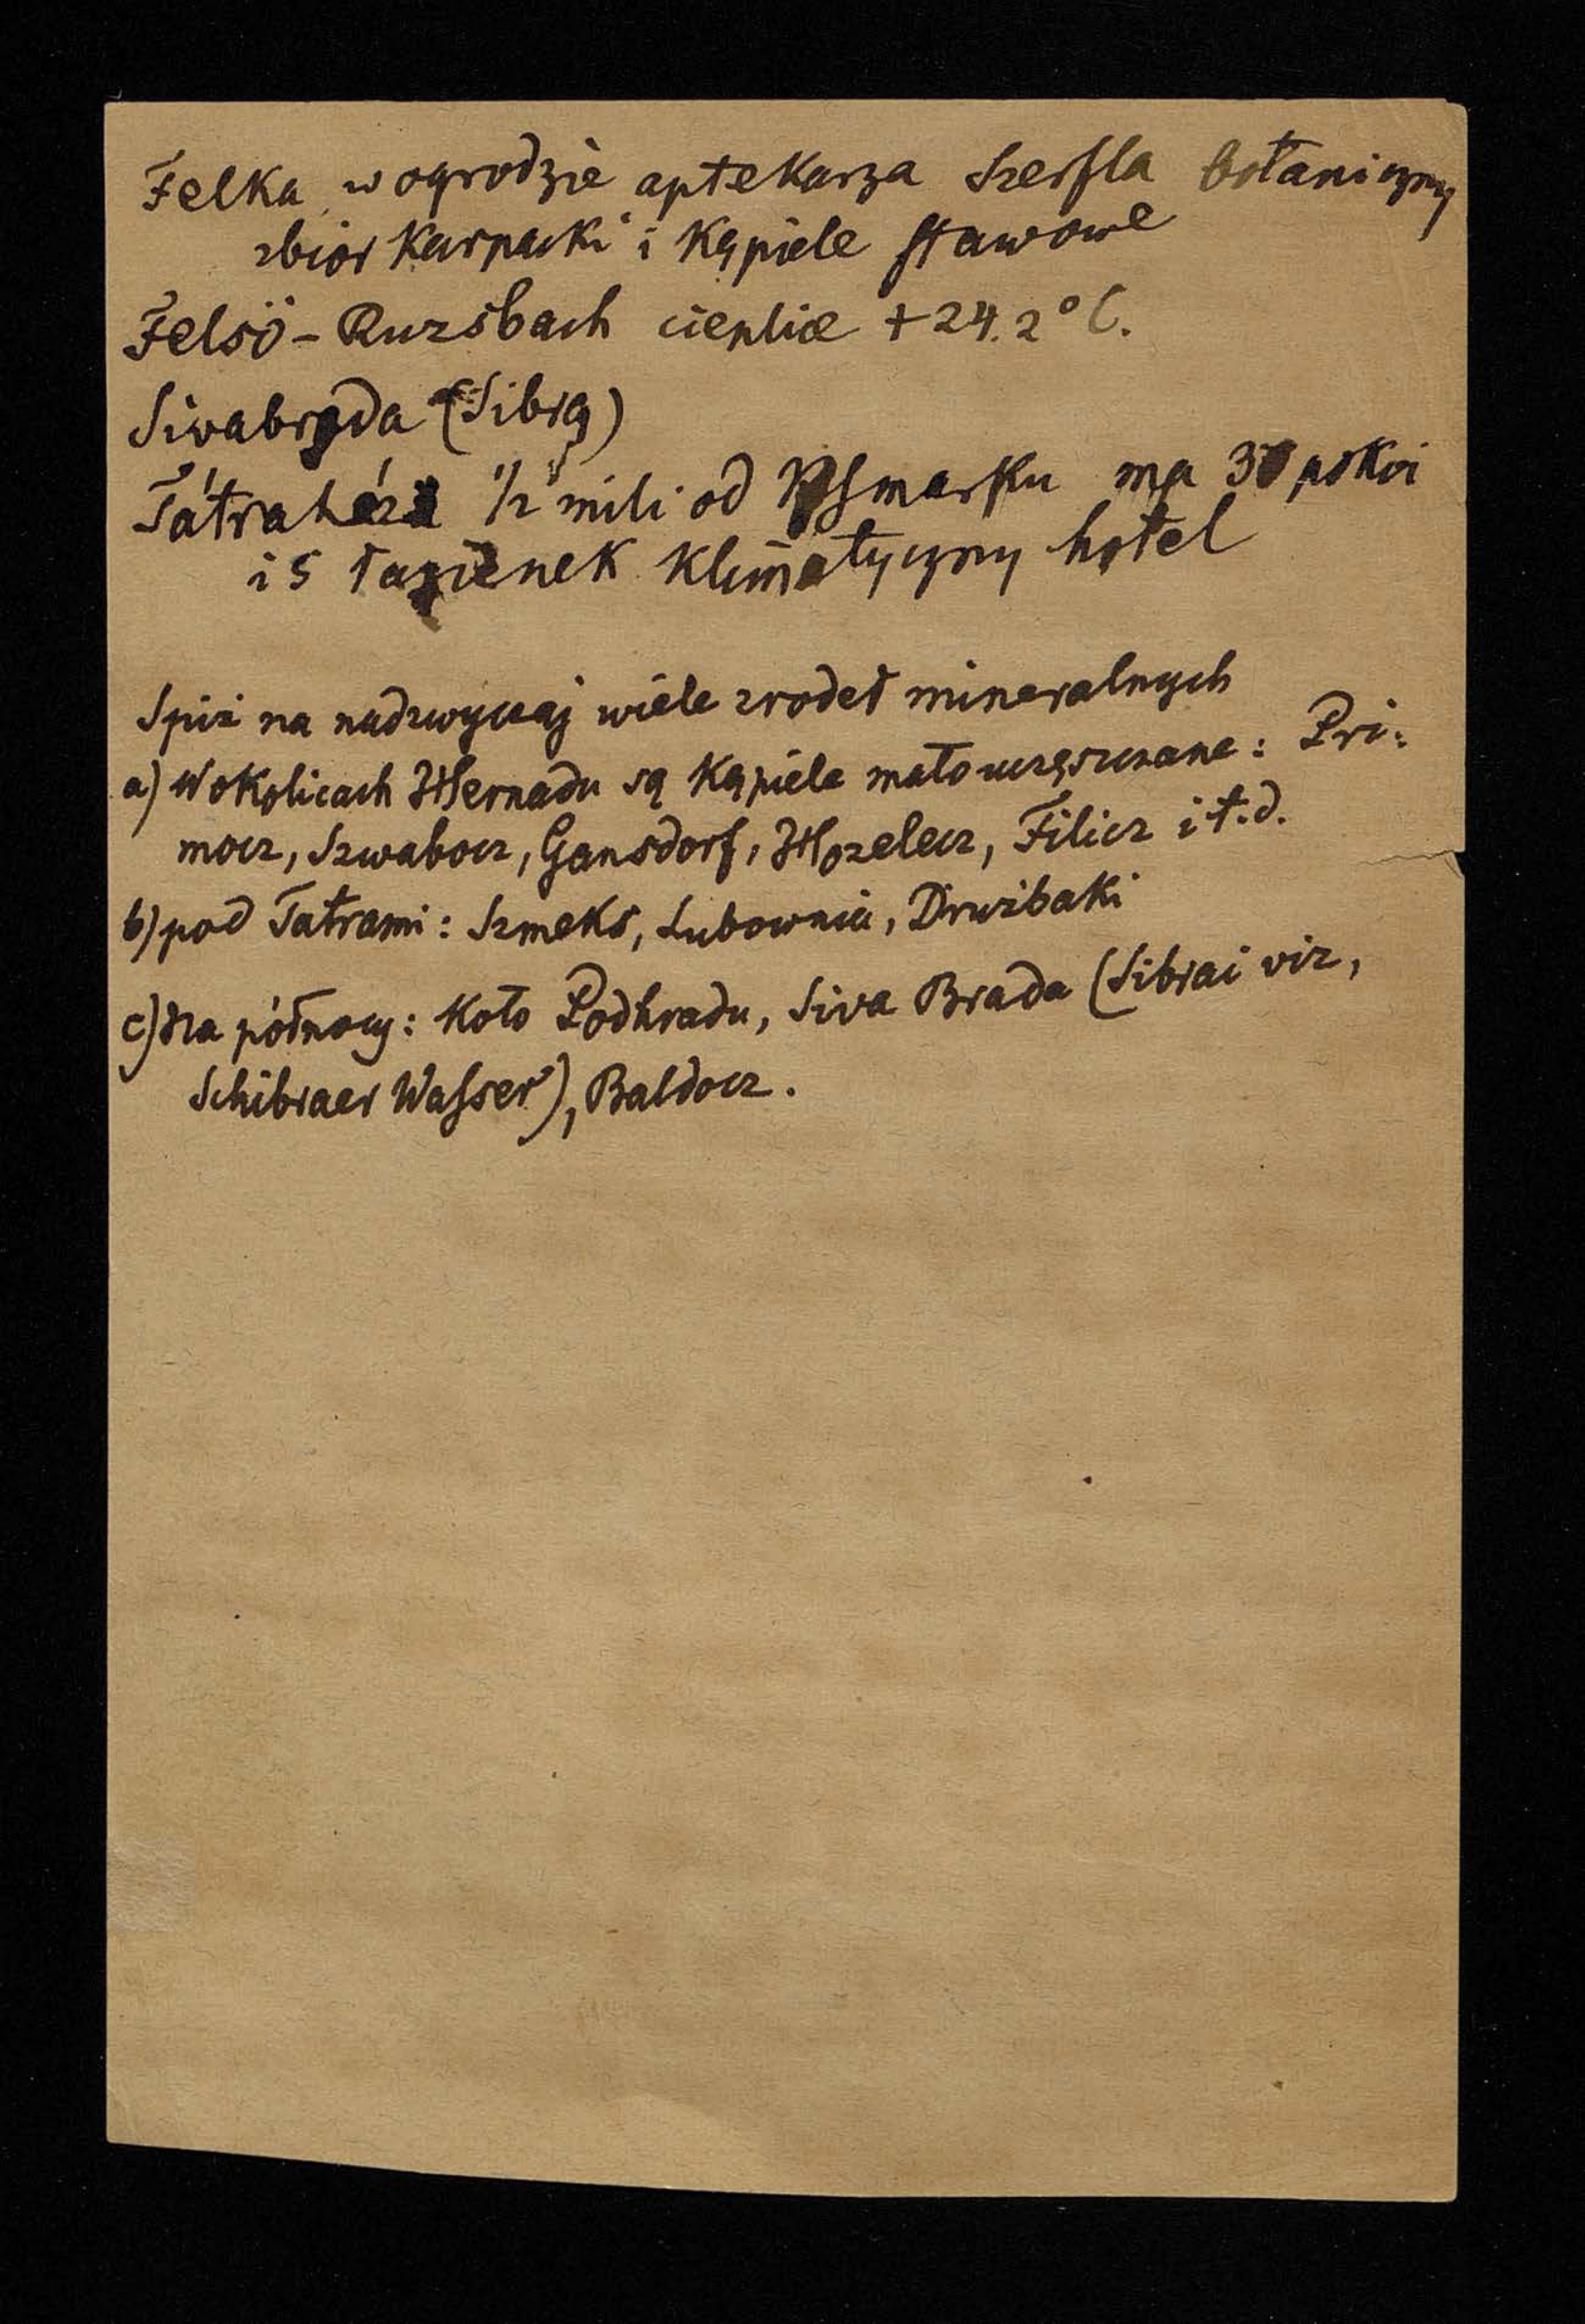 Felka w ogrodzie aptekarza Szerfla botaniczny
zbiór karpacki i kąpiele stawowe
Felsö-Ruzsbach cieplice +24.2°C.
Sivabrada (Sibra)
Tátraház ½ mili od Kesmarku ma 30 pokoi
i 5 łazienek klimatyczny hotel
Spiż na nadzwyczaj wiele zrodeł mineralnych
a) W okolicach Hernadu są kąpiele mało uczęszczane: Pri-
mocz, Szwabocz, Gansdorf, Hozelecz, Filicz i t.d.
b) pod Tatrami: Szmeks, Lubownia, Drużbaki
c) Na północy: koło Podhradu, Siva Brada (Sibrai viz,
Schibraer Wasser), Baldocz.